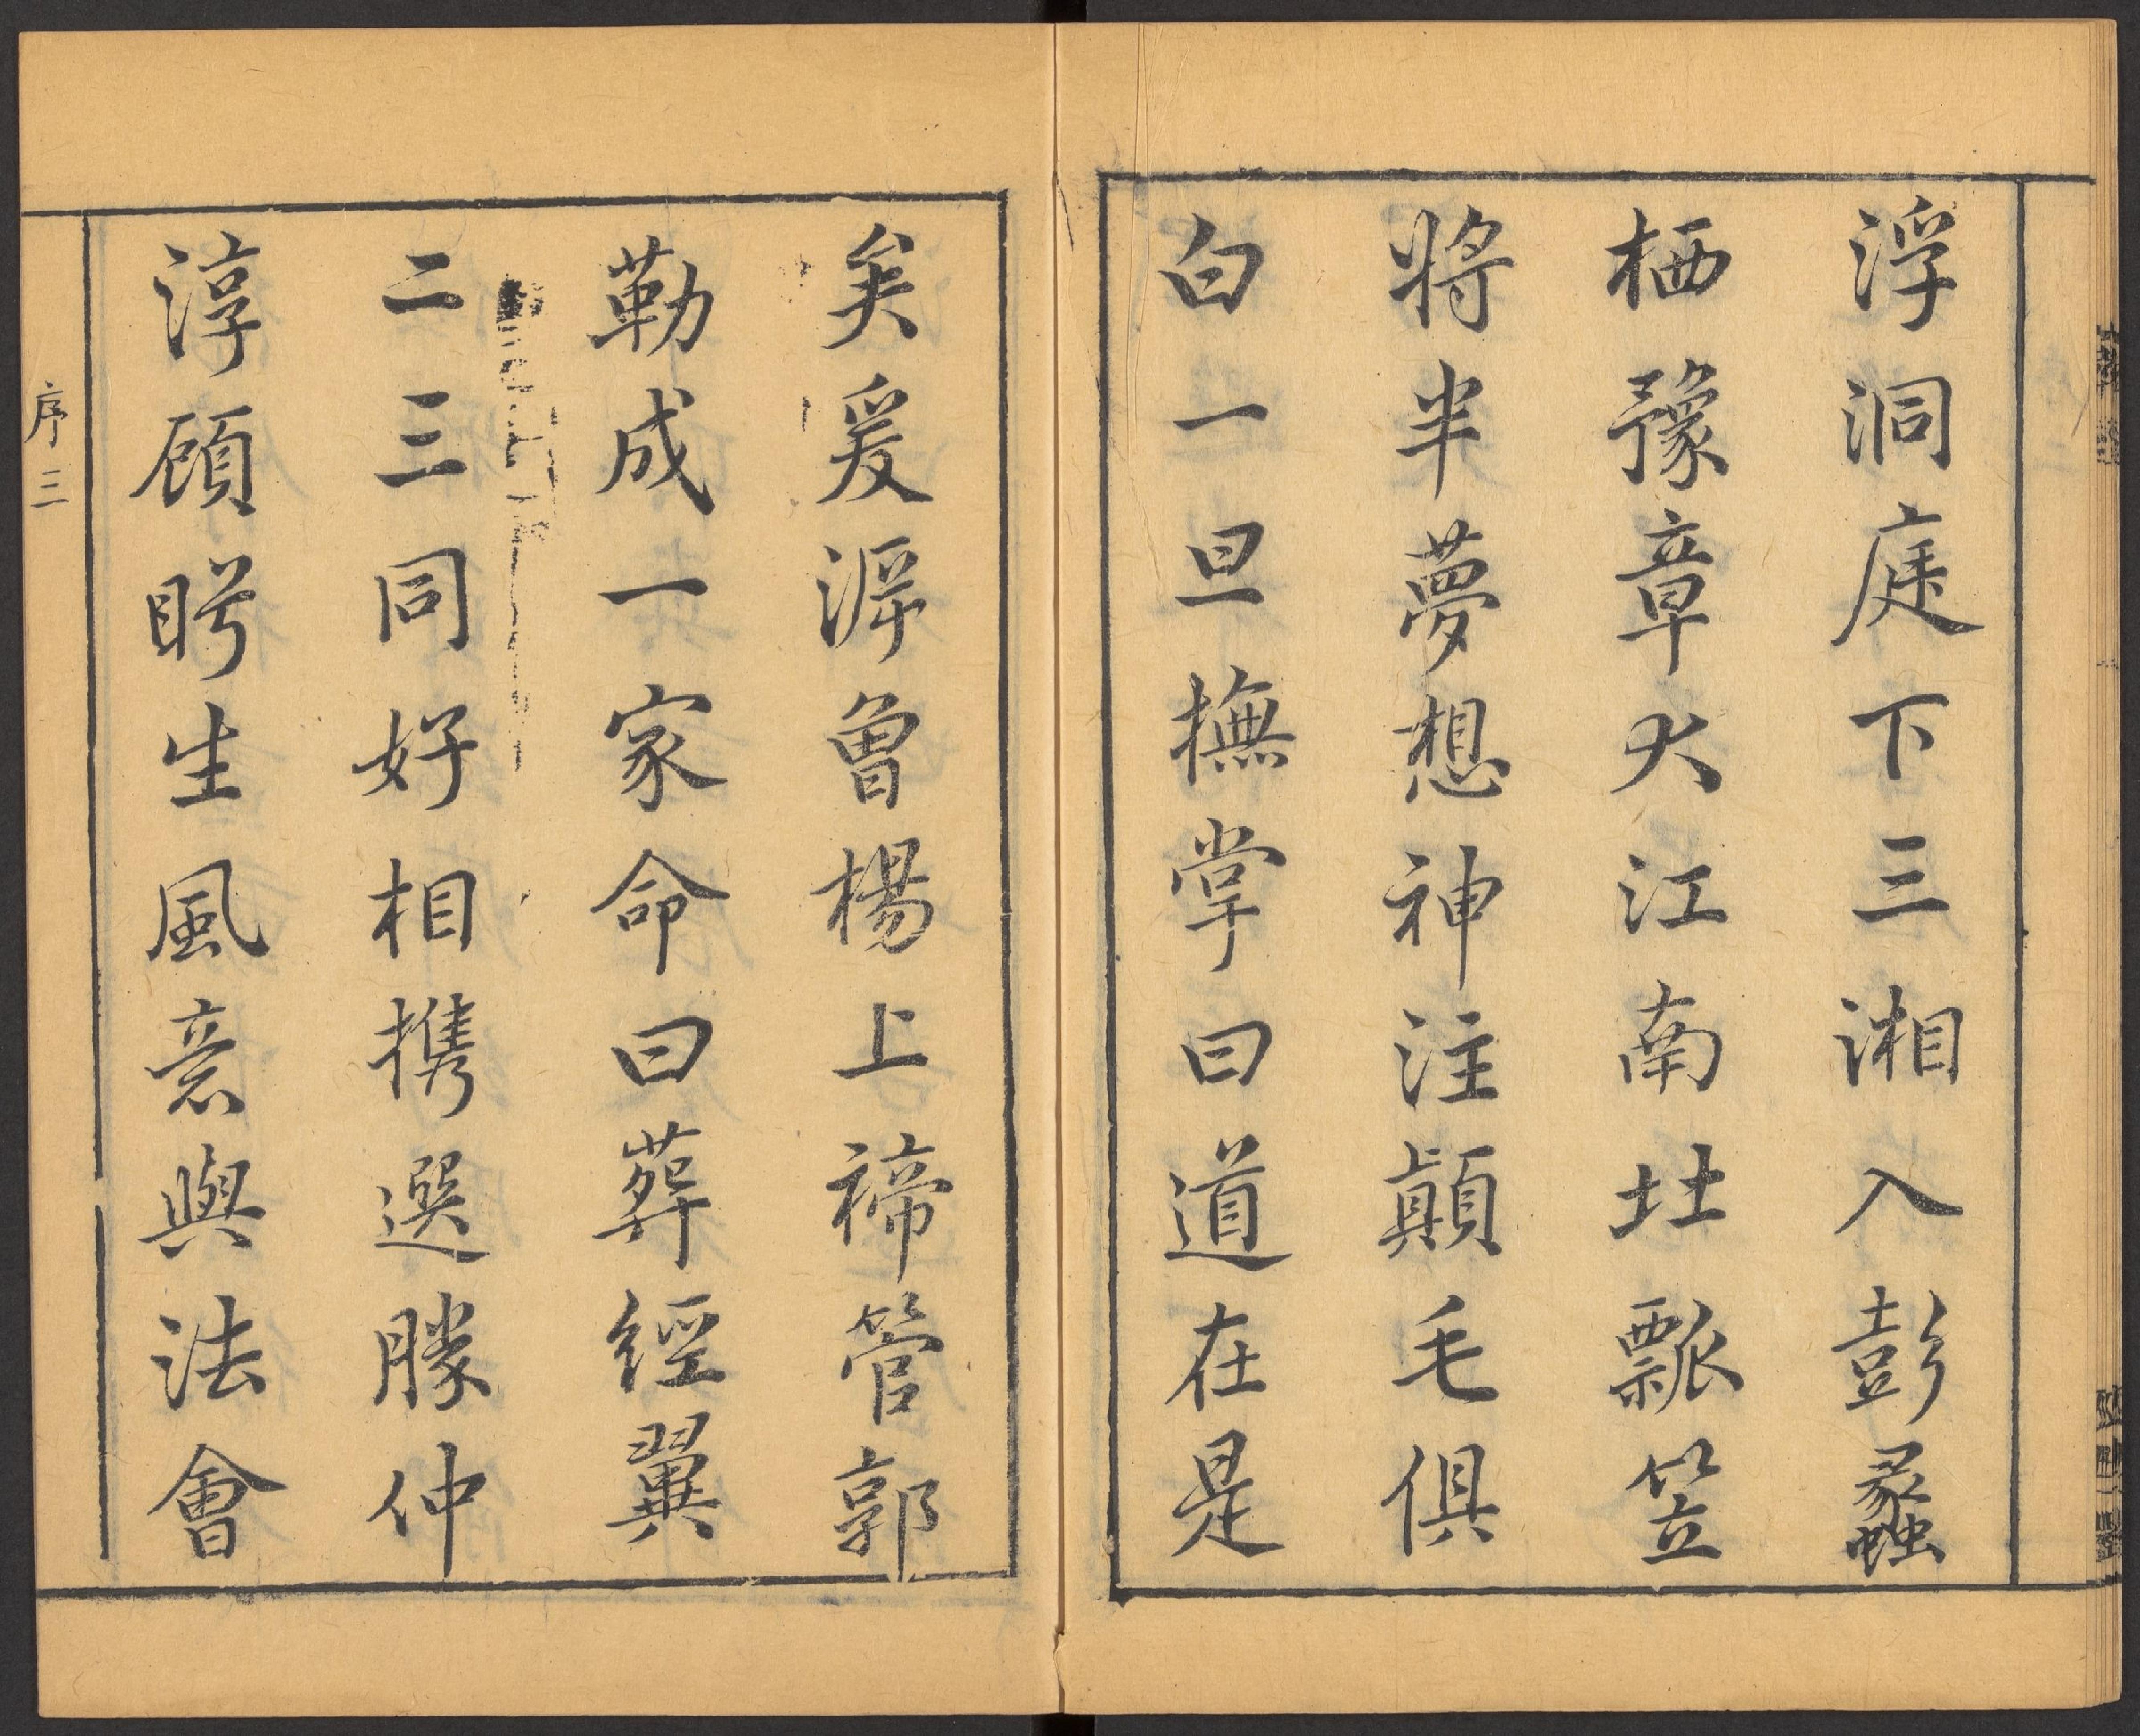 浮洞庭下三湘入彭蠡
栖豫章大江南北瓢笠
將半夢想神注顛毛俱
白一旦撫掌曰道在是
矣爰泝曾楊上禘管郭
勒成一家命曰葬經翼
二三同好相携選勝仲
淳顧眄生風意與法會
序三